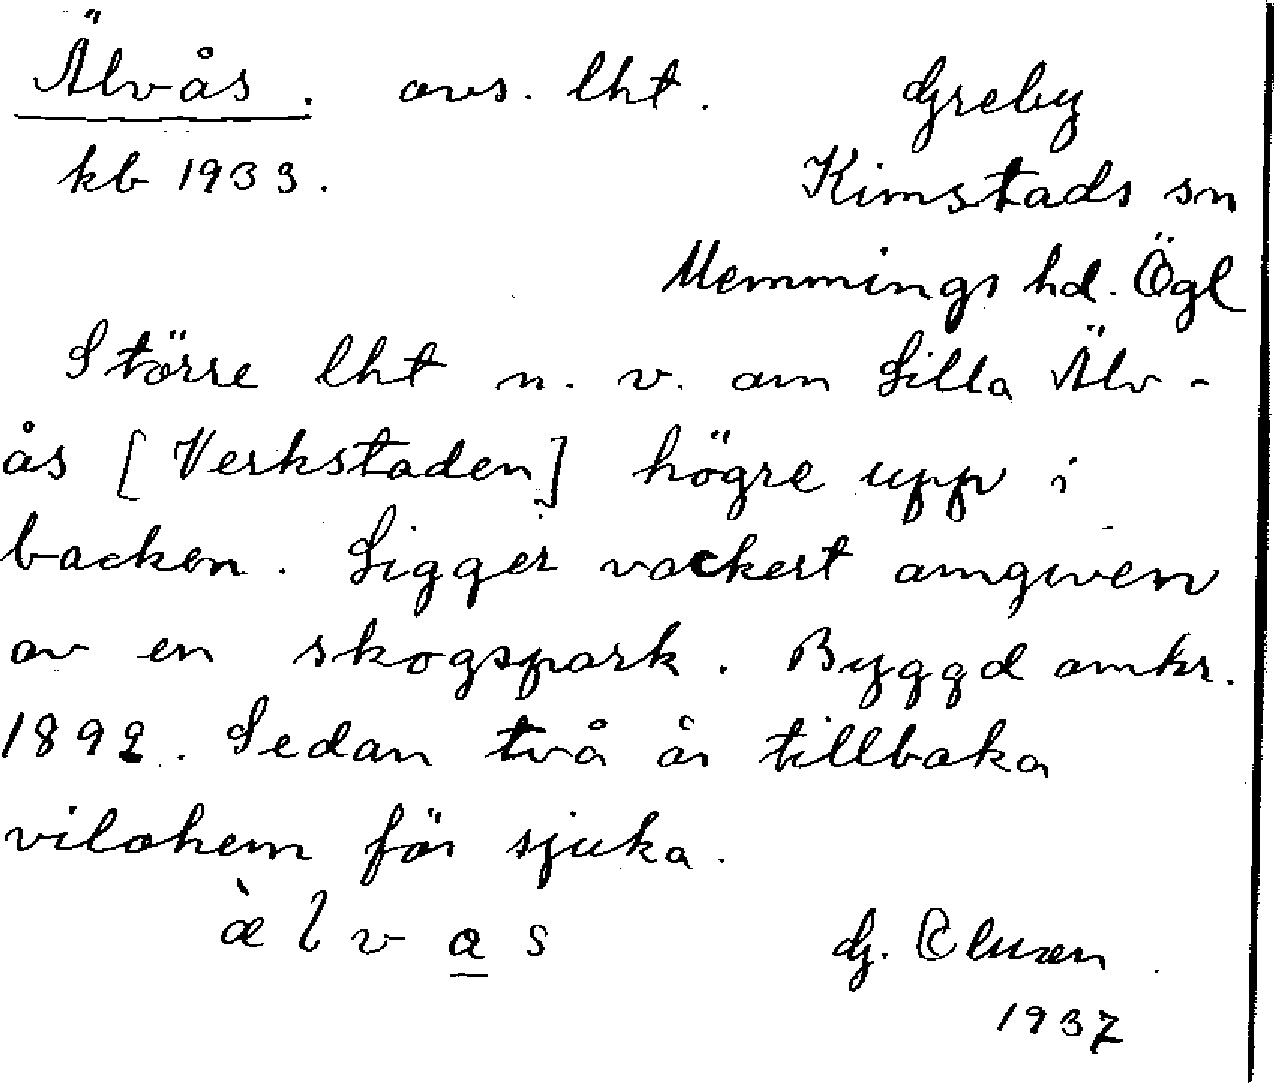 Älvås. avs. lht. Greby
kb 1933. Kimstads sn
Memmings hd. Ögl
Större lht n. v. om Lilla Älv-
ås [Verkstaden] högre upp i
backen. Ligger vackert omgiven
av en skogspark. Byggd omkr.
1892. Sedan två år tillbaka
vilohem för sjuka.
æ̀lvas G. Cluzen
1937